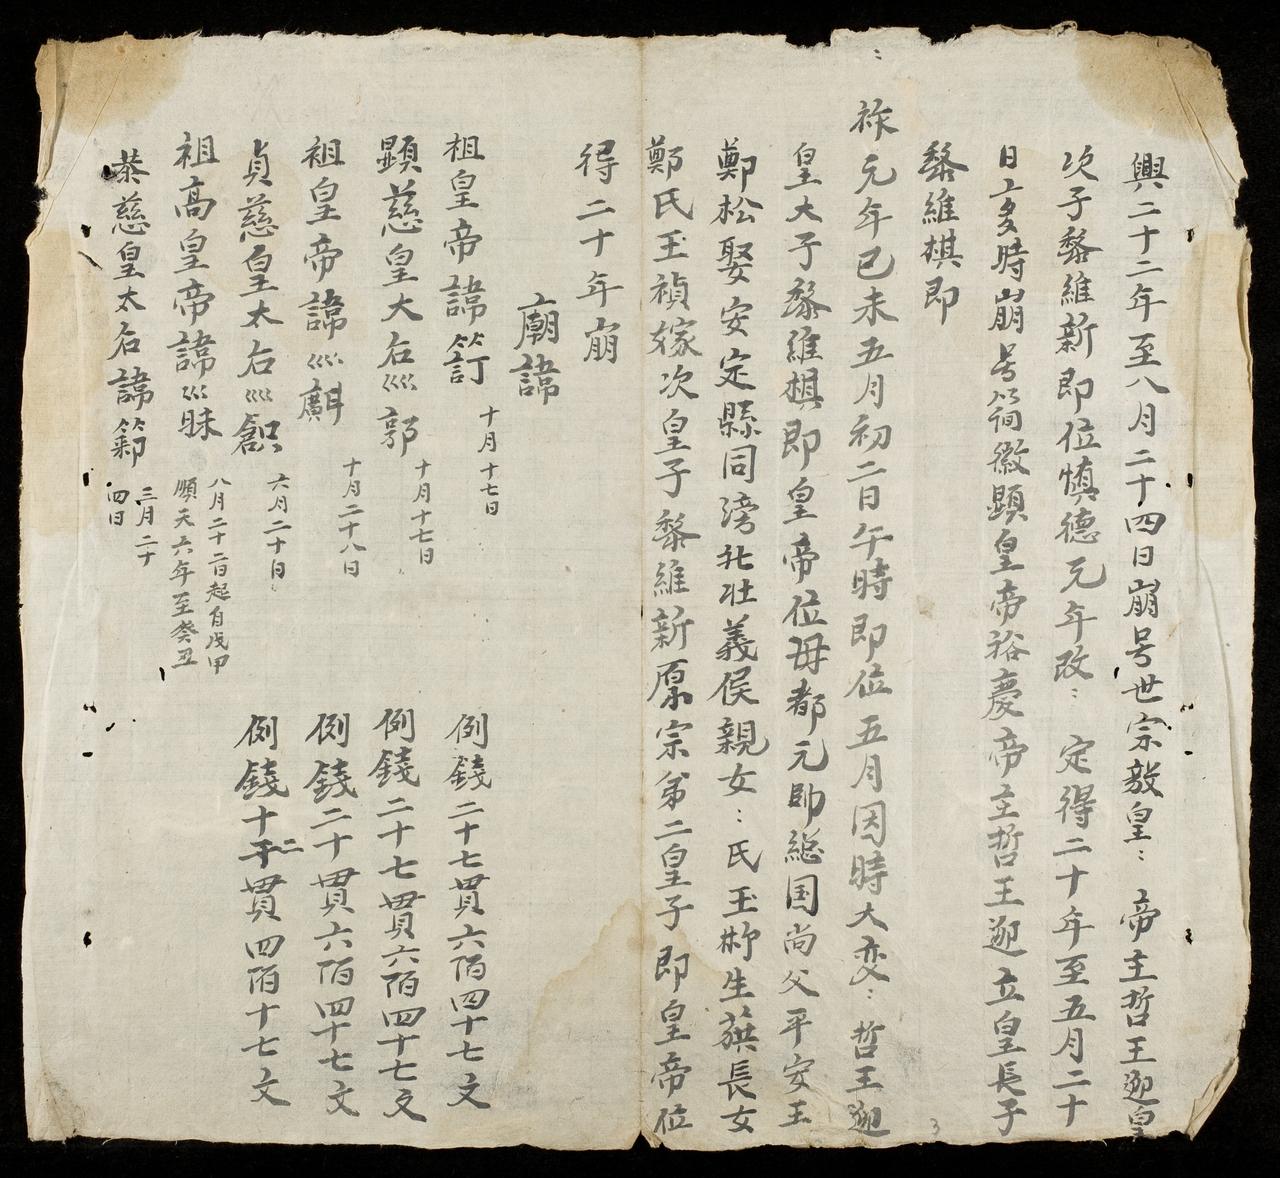 興二十二年至八月二十四日崩号世宗毅皇〻帝主哲王迎皇
次子黎維新即位慎德元年改〻定得二十年至五月二十
日亥時崩号簡徽顕皇帝裕慶帝主哲王迎立皇長子
黎維棋即
祚元年己未五月初二日午時即位五月因時大变〻哲王迎
皇大子黎維棋即皇帝位毋都元帥総国尚父平安王
鄭松娶安定縣同滂社壮義侯親女〻氏玉生長女
鄭氏玉禎嫁次皇子黎維新原宗弟二皇子即皇帝位
得二十年崩
廟諱
祖皇帝諱 十月十七日 例錢二十七貫六陌四十七文
顕慈皇太后 郭 十月十七日 例錢二十七貫六陌四十七文
祖皇帝諱 十月二十八日 例錢二十貫六陌四十七文
貞慈皇太后 六月二十日 例錢十二貫四陌十七文
祖高皇帝諱 八月二十二日起自戊甲
順天六年至癸丑
恭慈皇太后諱 三月二十
四日
3